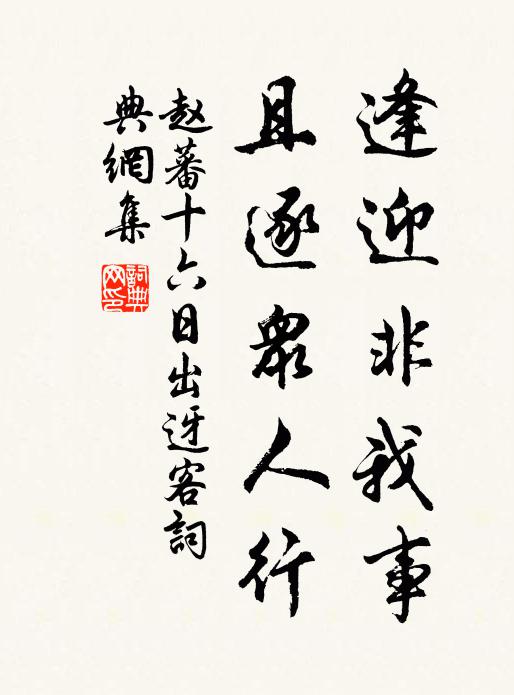 逢迎非我事
且逐眾人行
赵蕃十六日出迓客詞
典網集
詞典
网印